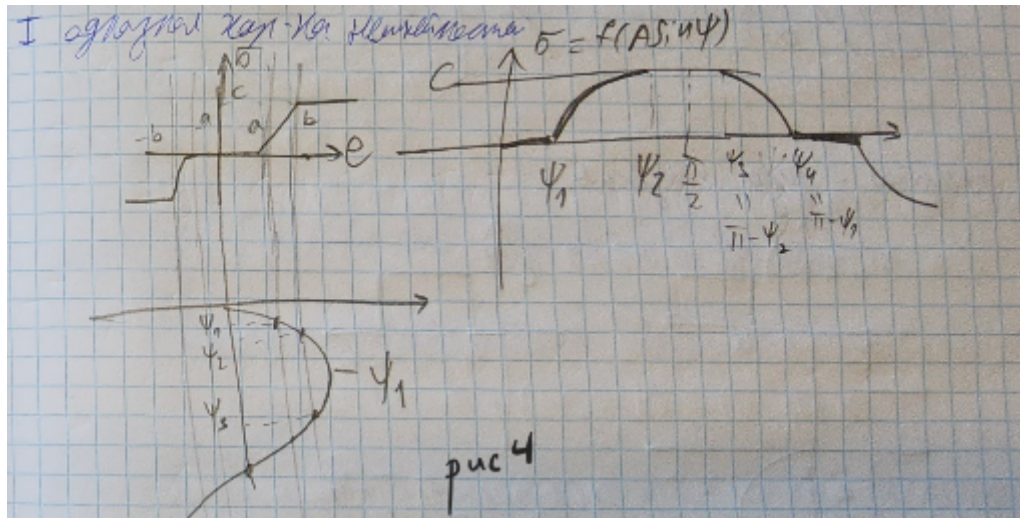 I однозная хар-ка нелинейности
σ = f(A sin ψ)
σ
c
C
-b
-a
a
b
e
ψ₁
ψ₂
π/2
ψ₃
ψ₄
=
=
π-ψ₂
π-ψ₁
ψ₁
ψ₂
ψ₃
ψ₁
рис 4